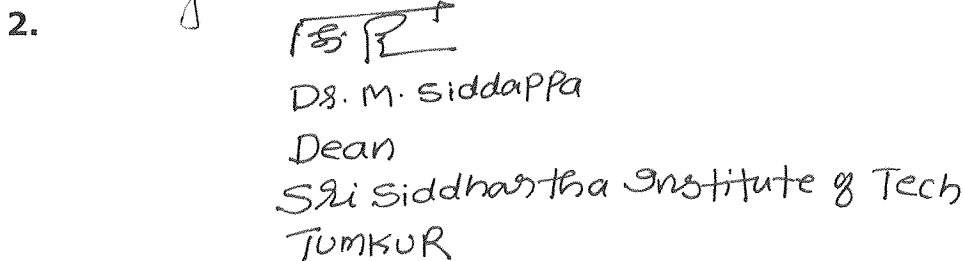 2.
Dr. M. Siddappa
Dean
Sri Siddhartha Institute of Tech
TUMKUR